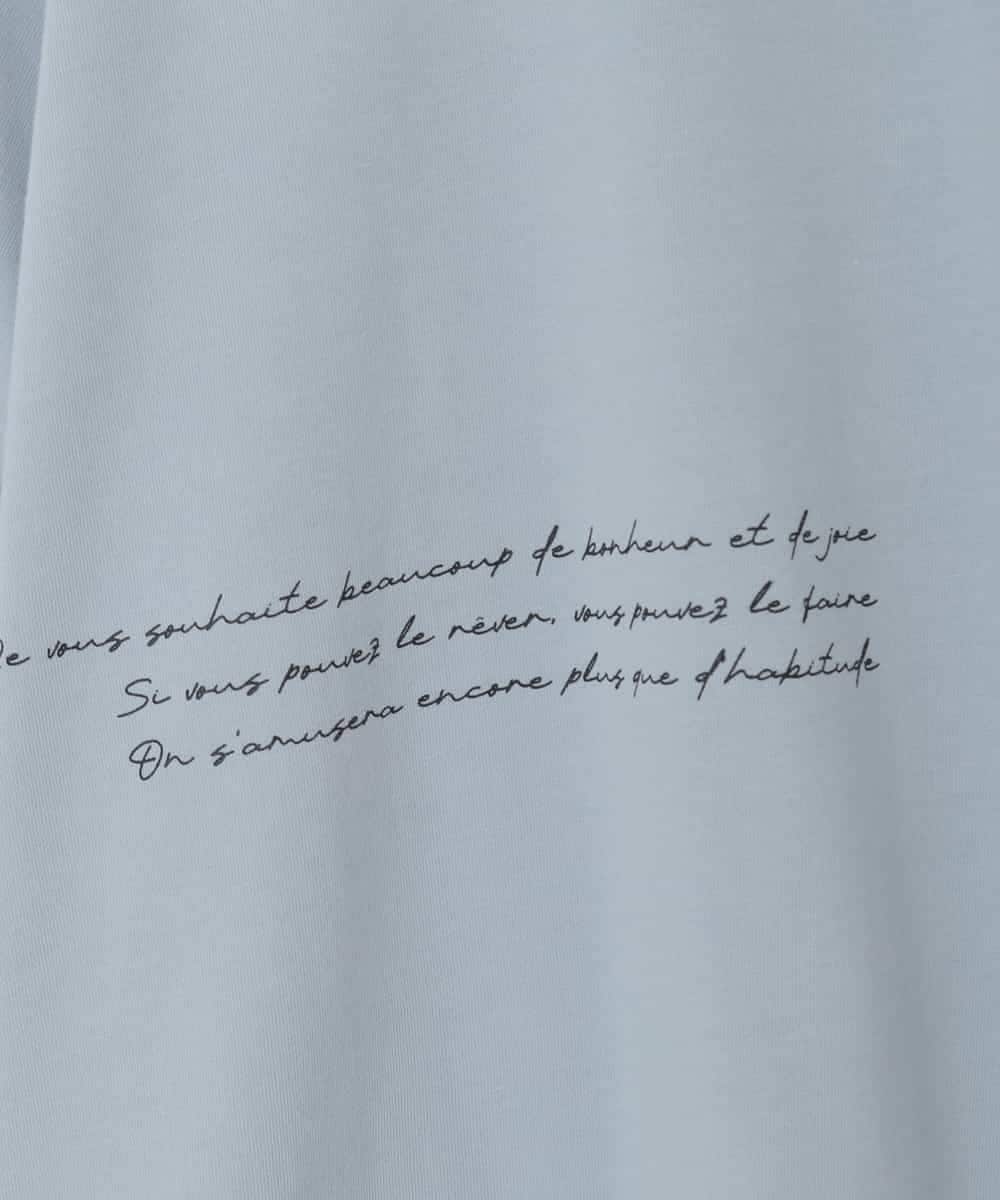 Je vous souhaite beaucoup de bonheur et de joie
Si vous pouvez le rêver, vous pouvez le faire
On s'amusera encore plus que d'habitude